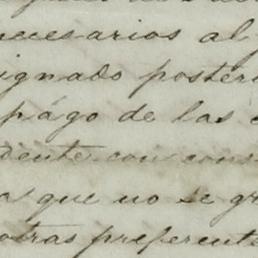 necesarios al
ignado posteri
pago de las
dente con cons
a que no se gr
otras preferente